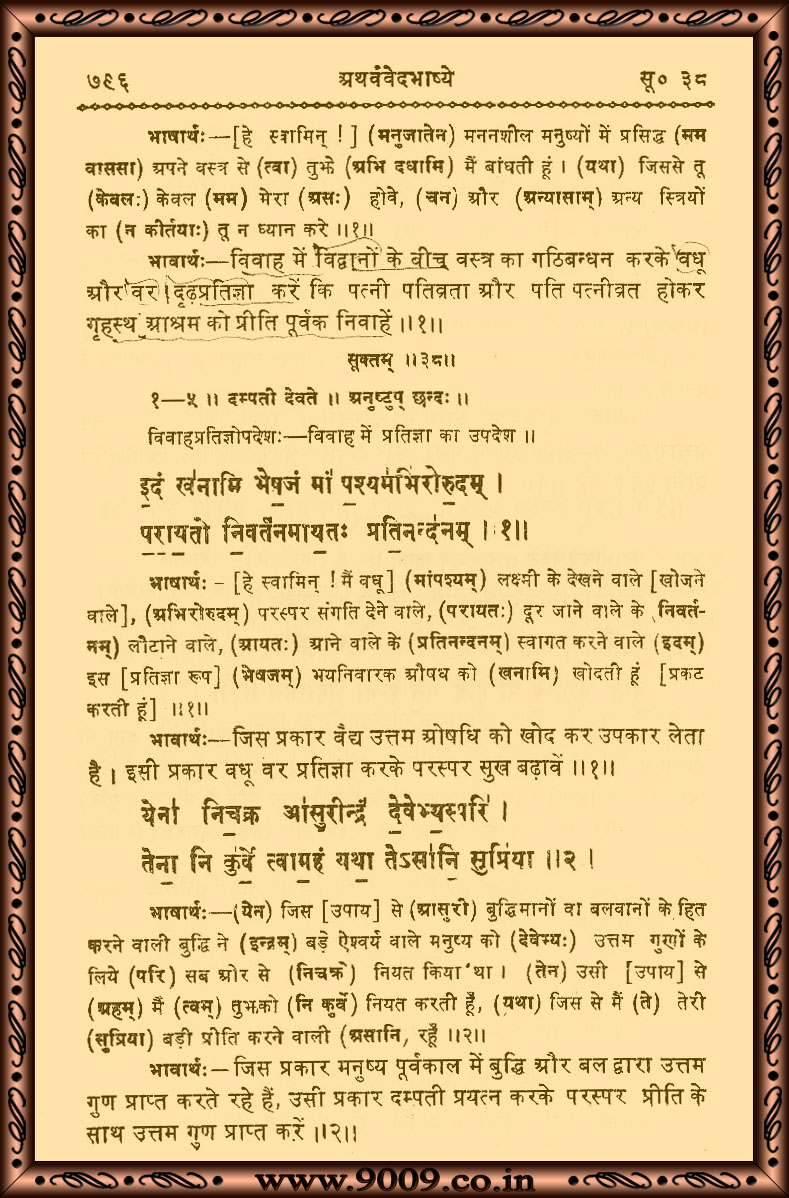 ७९६ अथर्ववेदभाष्ये सू० ३८
भाषार्थः—[हे स्वामिन् !] (मनुजातेन) मननशील मनुष्यों में प्रसिद्ध (मम
वाससा) अपने वस्त्र से (त्वा) तुझे (अभि दधामि) मैं बांधती हूं । (यथा) जिससे तू
(केवलः) केवल (मम) मेरा (असः) होवे, (चन) और (अन्यासाम्) अन्य स्त्रियों
का (न कीर्तयाः) तू न ध्यान करे ॥१॥
भावार्थः—विवाह में विद्वानों के बीच वस्त्र का गठिबन्धन करके वधू
और वर दृढ़प्रतिज्ञा करें कि पत्नी पतिव्रता और पति पत्नीव्रत होकर
गृहस्थ आश्रम को प्रीति पूर्वक निवाहें ॥१॥
सूक्तम् ॥३८॥
१—५ ॥ दम्पती देवते ॥ अनुष्टुप् छन्दः ॥
विवाहप्रतिज्ञोपदेशः—विवाह में प्रतिज्ञा का उपदेश ॥
इ॒दं ख॑नामि भेष॒जं मां॑ प॒श्यम॑भिरोरु॒दम् ।
प॒रा॒य॒तो नि॒वर्त॑नमाय॒तः प्र॑ति॒नन्द॑नम् । १॥
भाषार्थः – [हे स्वामिन् ! मैं वधू] (मांपश्यम्) लक्ष्मी के देखने वाले [खोजने
वाले], (अभिरोरुदम्) परस्पर संगति देने वाले, (परायतः) दूर जाने वाले के (निवर्त-
नम्) लौटाने वाले, (आयतः) आने वाले के (प्रतिनन्दनम्) स्वागत करने वाले (इदम्)
इस [प्रतिज्ञा रूप] (भेषजम्) भयनिवारक औषध को (खनामि) खोदती हूं [प्रकट
करती हूं] ॥१॥
भावार्थः—जिस प्रकार वैद्य उत्तम ओषधि को खोद कर उपकार लेता
है । इसी प्रकार वधू वर प्रतिज्ञा करके परस्पर सुख बढ़ावें ॥१॥
येना॑ निच॒क्र आ॑सु॒रीन्द्रं॑ दे॒वेभ्य॒स्परि॑ ।
तेना॒ नि कु॑र्वे॒ त्वाम॒हं यथा॒ तेऽसा॑नि॒ सुप्रि॑या ॥२ ।
भाषार्थः—(येन) जिस [उपाय] से (आसुरी) बुद्धिमानों वा बलवानों के हित
करने वाली बुद्धि ने (इन्द्रम्) बड़े ऐश्वर्य वाले मनुष्य को (देवेभ्यः) उत्तम गुणों के
लिये (परि) सब ओर से (निचक्रे) नियत किया था । (तेन) उसी [उपाय] से
(अहम्) मैं (त्वम्) तुझको (नि कुर्वे) नियत करती हूँ, (यथा) जिस से मैं (ते) तेरी
(सुप्रिया) बड़ी प्रीति करने वाली (असानि, रहूँ ॥२॥
भावार्थः—जिस प्रकार मनुष्य पूर्वकाल में बुद्धि और बल द्वारा उत्तम
गुण प्राप्त करते रहे हैं, उसी प्रकार दम्पती प्रयत्न करके परस्पर प्रीति के
साथ उत्तम गुण प्राप्त करें ॥२॥
www.9009.co.in